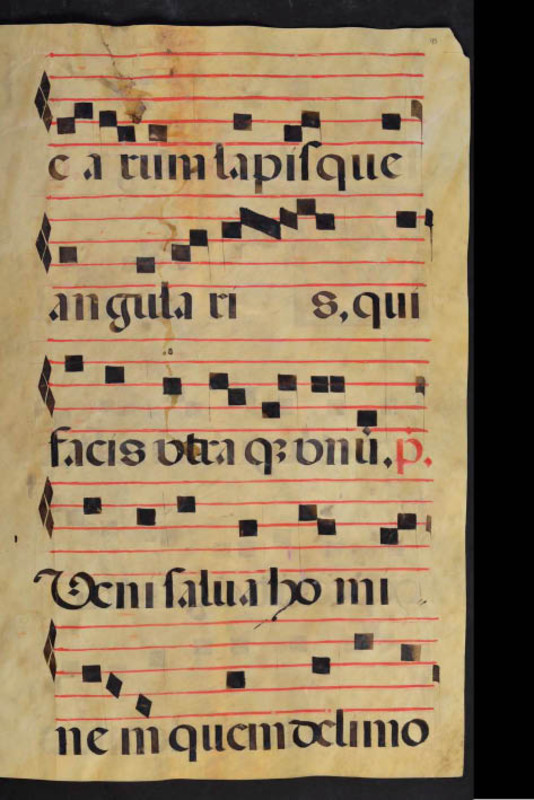 c a rum lapisque
angula ri s, qui
facis vtra qꝫ vnū. p̄.
Veni salua ho mi
ne m quem de limo